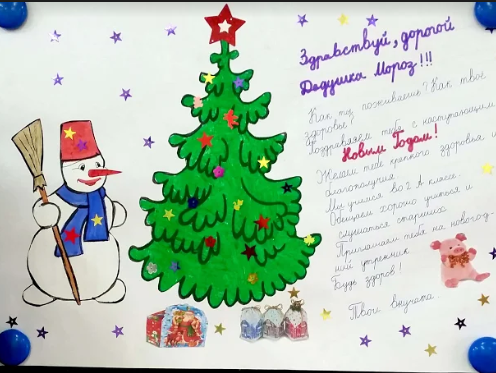 Здравствуй, дорогой
Дедушка Мороз!!!
Как ты поживаешь? Как твоё
здоровье?
Поздравляем тебя с наступающим
Новым Годом!
Желаем тебе крепкого здоровья,
благополучия.
Мы учимся во 2 А классе.
Обещаем хорошо учиться и
слушаться старших.
Приглашаем тебя на новогод-
ний утренник.
Будь здоров!
Твои внучата.